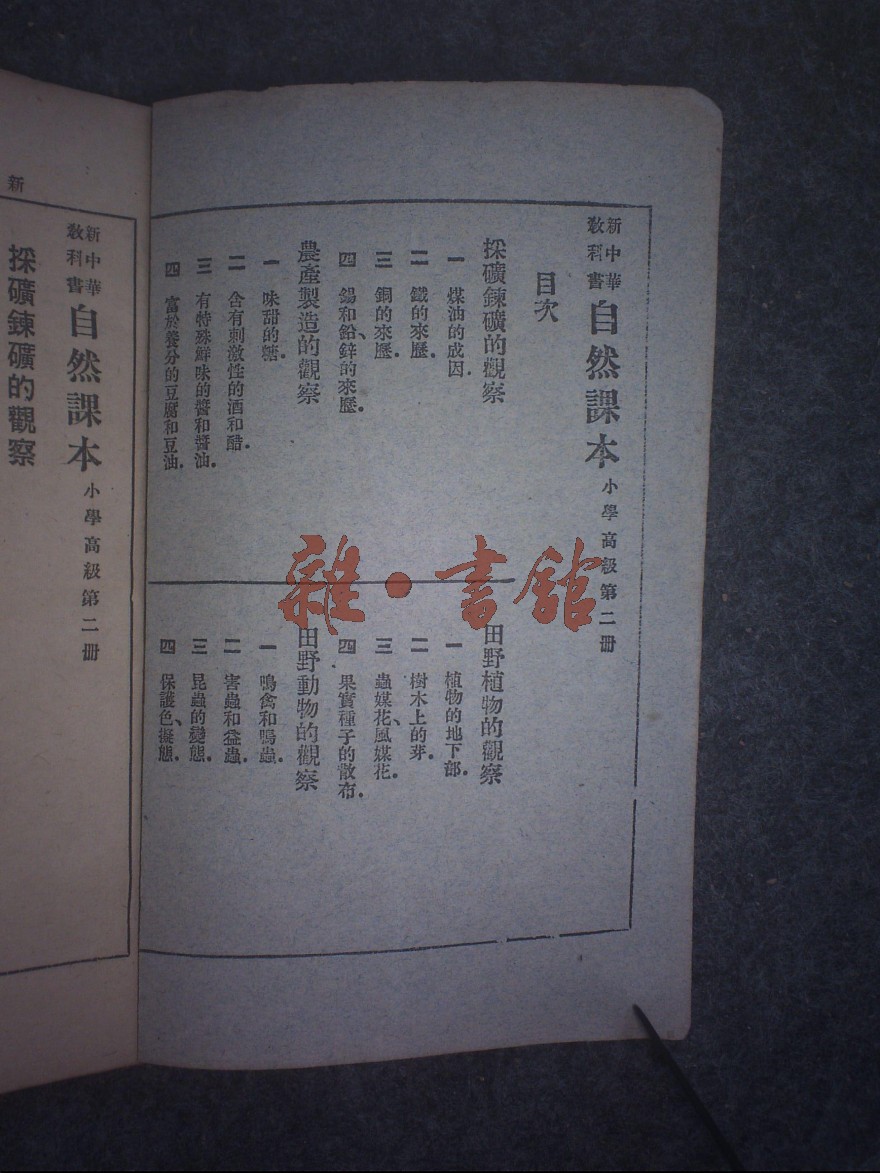 新中華
教科書
自然課本
小學高級第二冊
目次
採礦鍊礦的觀察
一 煤油的成因.
二 鐵的來歷.
三 銅的來歷.
四 錫和鉛、鋅的來歷.
農產製造的觀察
一 味甜的糖.
二 含有刺激性的酒和醋.
三 有特殊鮮味的醬和醬油.
四 富於養分的豆腐和豆油.
田野植物的觀察
一 植物的地下部.
二 樹木上的芽.
三 蟲媒花、風媒花.
四 果實種子的散布.
田野動物的觀察
一 鳴禽和鳴蟲.
二 害蟲和益蟲.
三 昆蟲的變態.
四 保護色、擬態.
雜·書館
新中華
教科書
自然課本
小學高級第二冊
採礦鍊礦的觀察
新